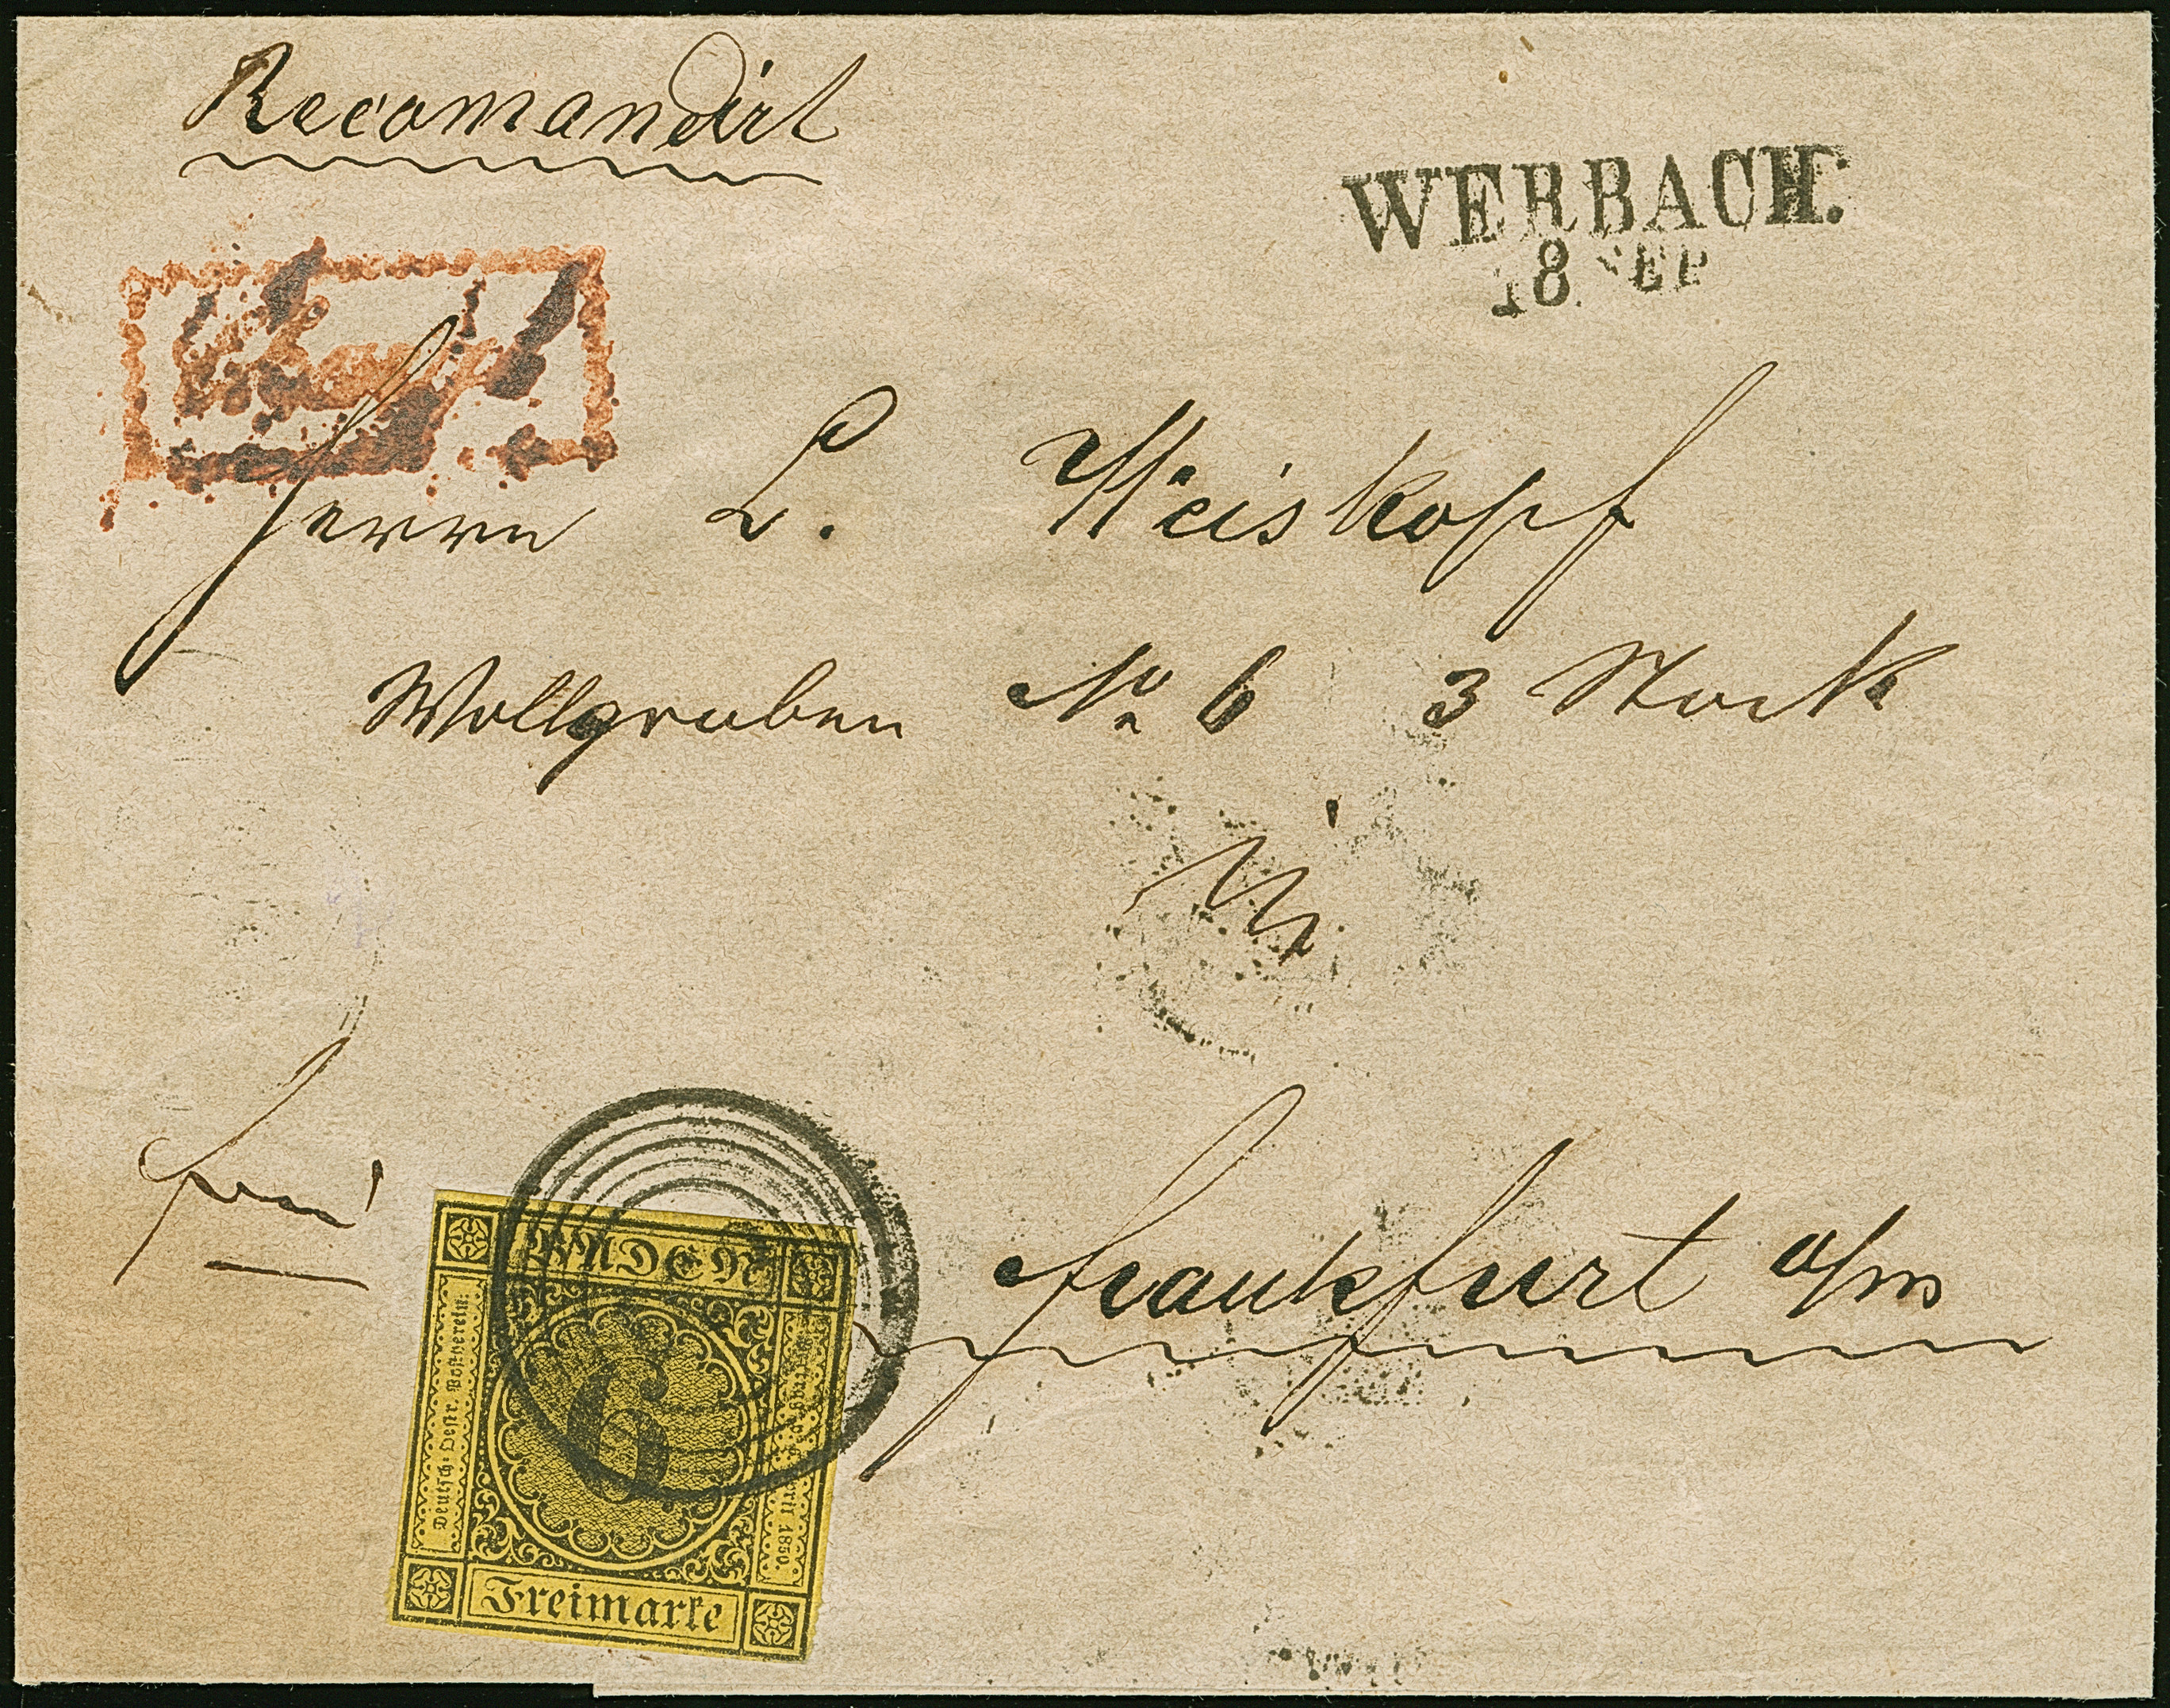 Recomandirt
WERBACH.
18. SEP
Chargé
Herrn L. Weiskopf
Wollgraben No 6 3 Stock
in
frei
Frankfurt a/m
BADEN
Deutsch-Oestr. Postverein.
6
April 1850.
Freimarke